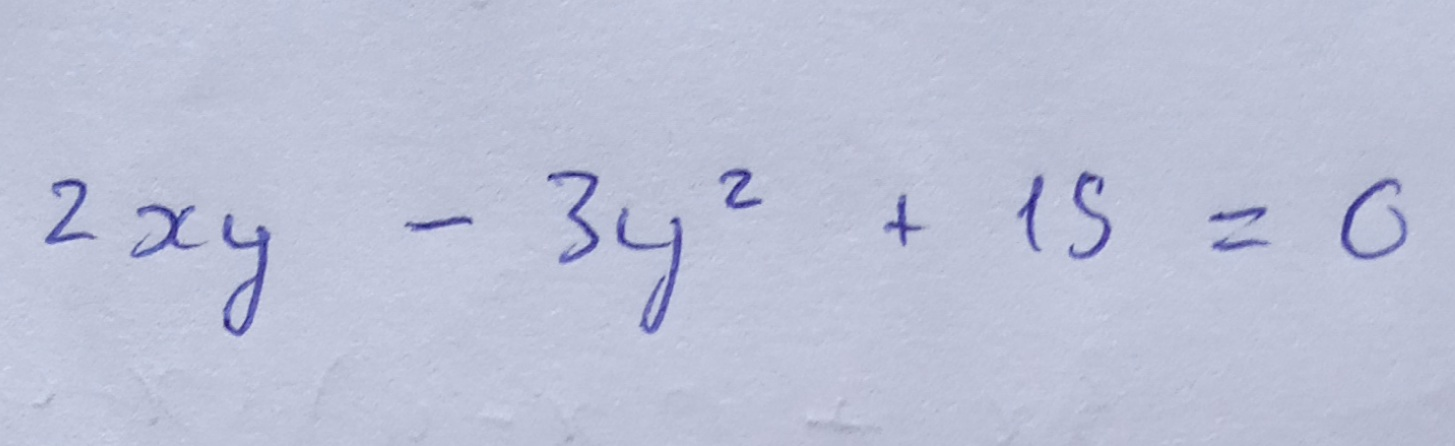 2xy - 3y² + 15 = 0